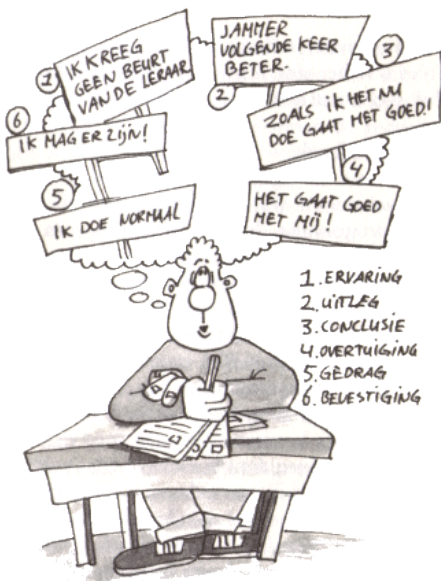 1
IK KREEG
GEEN BEURT
VAN DE LERAAR
2
JAMMER
VOLGENDE KEER
BETER.
3
ZOALS IK HET NU
DOE GAAT HET GOED!
4
HET GAAT GOED
MET MIJ!
5
IK DOE NORMAAL
6
IK MAG ER ZIJN!
1. ERVARING
2. UITLEG
3. CONCLUSIE
4. OVERTUIGING
5. GEDRAG
6. BEVESTIGING